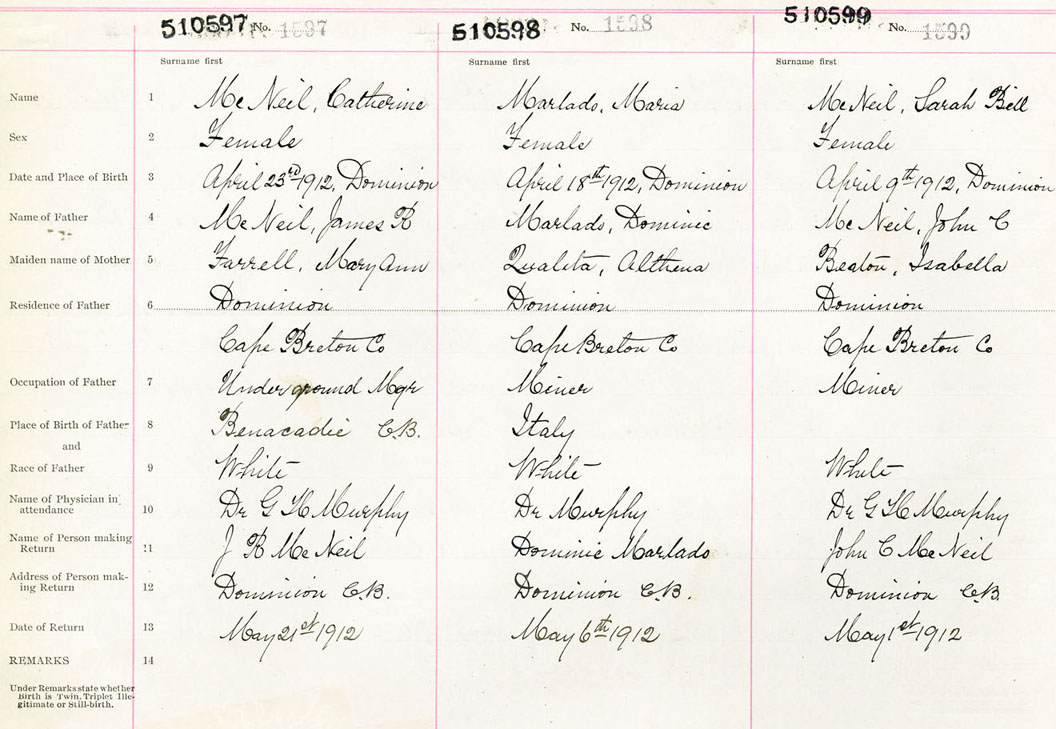 510597 No. 1597 510598 No. 1598 510599 No. 1599
Surname first Surname first Surname first
Name 1 Mc Neil, Catherine Marlado, Maria Mc Neil, Sarah Bell
Sex 2 Female Female Female
Date and Place of Birth 3 April 23rd 1912, Dominion April 18th 1912, Dominion April 9th 1912, Dominion
Name of Father 4 Mc Neil, James B Marlado, Dominic Mc Neil, John C
Maiden name of Mother 5 Farrell, Mary Ann Qualita, Althena Beaton, Isabella
Residence of Father 6 Dominion Dominion Dominion
Cape Breton Co Cape Breton Co Cape Breton Co
Occupation of Father 7 Underground Mgr Miner Miner
Place of Birth of Father 8 Benacadie C.B. Italy
and
Race of Father 9 White White White
Name of Physician in
attendance 10 Dr G H Murphy Dr Murphy Dr G H Murphy
Name of Person making
Return 11 J B Mc Neil Dominic Marlado John C Mc Neil
Address of Person mak-
ing Return 12 Dominion C.B. Dominion C.B. Dominion C.B.
Date of Return 13 May 21st 1912 May 6th 1912 May 1st 1912
REMARKS 14
Under Remarks state whether
Birth is Twin, Triplet Ille-
gitimate or Still-birth.